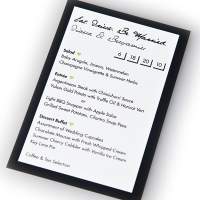 Eat, Drink, Be Married
6 18 20 10
Salad
Baby Arugula, Jicama, Watermelon
Champagne Vinaigrette & Summer Herbs
Entrée
Argentinean Steak with Chimichurri Sauce
Yukon Gold Potato with Truffle Oil & Haricot Vert
or
Light BBQ Snapper with Apple Slaw
Grilled Sweet Potatoes, Cilantro Snap Peas
Dessert Buffet
Assortment of Wedding Cupcakes
Chocolate Mousse with Fresh Whipped Cream
Summer Cherry Cobbler with Vanilla Ice Cream
Key Lime Pie
Coffee & Tea Selection